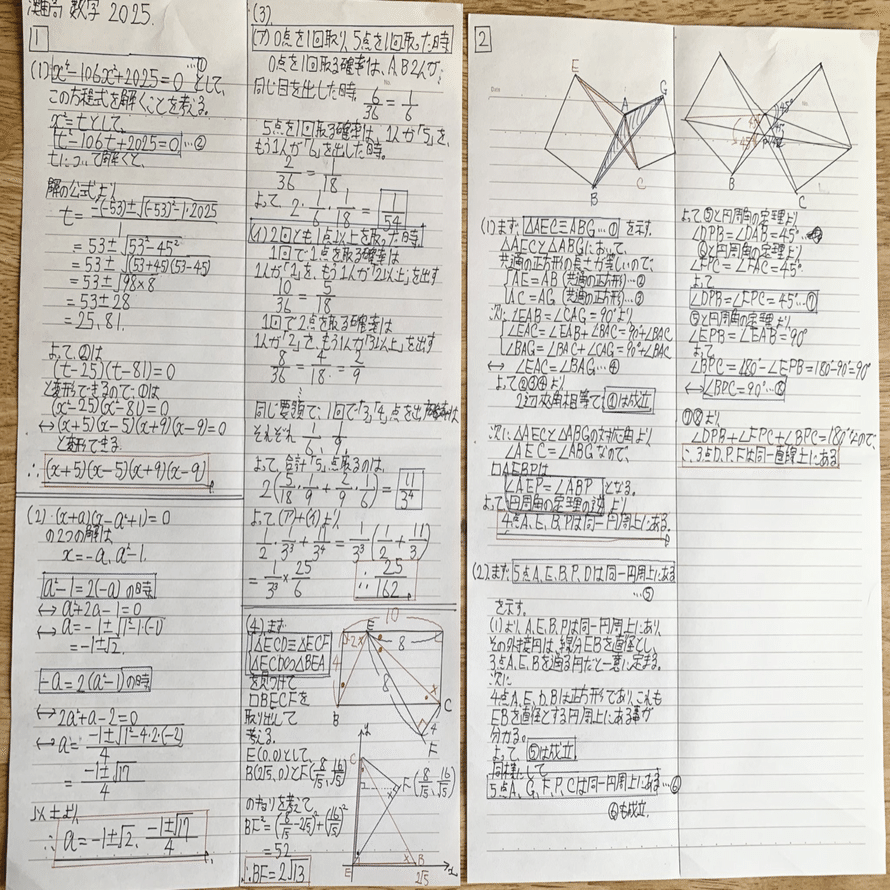 灘高 数学 2025.
1
(1) x⁴-106x²+2025=0 …① として、
この方程式を解くことを考える。
x²=tとして、
t²-106t+2025=0 …②
tについて解くと、
解の公式より
t=-(-53)±√(-53)²-1·2025
1
=53±√53²-45²
=53±√(53+45)(53-45)
=53±√98×8
=53±28
=25,81.
よって、②は
(t-25)(t-81)=0
と変形できるので、①は
(x²-25)(x²-81)=0
⇔(x+5)(x-5)(x+9)(x-9)=0
と変形できる.
∴(x+5)(x-5)(x+9)(x-9)
(2)·(x+a)(x-a²+1)=0
の2つの解は
x=-a, a²-1.
a²-1=2(-a) の時
⇔a²+2a-1=0
⇔a=-1±√1²-1·(-1)
=-1±√2.
-a=2(a²-1)の時
⇔2a²+a-2=0
⇔a=-1±√1²-4·2·(-2)
4
=-1±√17
4
以上より
∴a=-1±√2, -1±√17
4
(3).
(ア)0点を1回取り、5点を1回取った時
0点を1回取る確率は、A,B2人が
同じ目を出した時. 6/36=1/6
5点を1回取る確率は、1人が「5」を、
もう1人が「6」を出した時。
2/36=1/18
よって、2·1/6·1/18=1/54
(イ)2回とも1点以上を取った時
1回で1点を取る確率は
1人が「1」を、もう1人が「2以上」を出す
10/36=5/18
1回で2点を取る確率は
1人が「2」を、もう1人が「3以上」を出す
8/36=4/18=2/9
同じ要領で、1回で「3」「4」点を出す確率は
それぞれ 1/6, 1/9
よって、合計「5」点取るのは、
2(5/18·1/9+2/9·1/6)=11/3⁴
よって(ア)+(イ)より
1/2·1/3³+11/3⁴=1/3³(1/2+11/3)
=1/3³×25/6 ∴25/162
(4).まず
△ECD≡△ECF
△ECD∽△BEA
を見つけて
□BECFを
取り出して
考える.
E(0,0)として、
B(2√5,0)とF(8/√5,16/√5)
のキョリを考えて、
BF²=(8/√5-2√5)²+(16/√5)²
=52
∴BF=2√13
10
E
8
4
8
B
C
4
F
y
C
F(8/√5,16/√5)
E
B
x
2√5
2
E
A
G
B
C
(1)まず △AEC≡△ABG…① を示す.
△AECと△ABGにおいて、
共通の正方形の長さが等しいので、
AE=AB (共通の正方形)…②
AC=AG (共通の正方形)…③
次に∠EAB=∠CAG=90°より
∠EAC=∠EAB+∠BAC=90°+∠BAC
∠BAG=∠BAC+∠CAG=90°+∠BAC
⇔ ∠EAC=∠BAG…④
よって②③④より
2辺夾角相等で、①は成立
次に、△AECと△ABGの対応角より
∠AEC=∠ABGなので、
□AEBPは
∠AEP=∠ABP となる.
よって円周角の定理の逆より
4点A,E,B,Pは同一円周上にある.
(2).まず 5点A,E,B,P,Dは同一円周上にある
…⑤
を示す。
(1)より、A,E,B,Pは同一円周上にあり、
その外接円は、線分EBを直径とし、
3点A,E,Bを通る円だと一意に定まる。
次に
4点A,E,D,Bは正方形であり、これも
EBを直径とする円周上にある事が
分かる。
よって、⑤は成立.
同様にして
5点A,G,F,P,Cは同一円周上にある…⑥
⑥も成立.
45°
B
C
よって⑤と円周角の定理より
∠DPB=∠DAB=45°
⑥と円周角の定理より
∠FPC=∠FAC=45°
よって
∠DPB=∠FPC=45°…⑦
⑤と円周角の定理より
∠EPB=∠EAB=90°
よって
∠BPC=180°-∠EPB=180°-90°=90°
⇔∠BPC=90°…⑧
⑦⑧より
∠DPB+∠FPC+∠BPC=180°なので、
∴3点D,P,Fは同一直線上にある